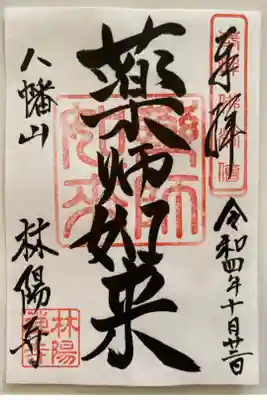 奉拝
令和四年十月廿三日
薬師如来
藥師
如来
八幡山
林陽寺
林陽